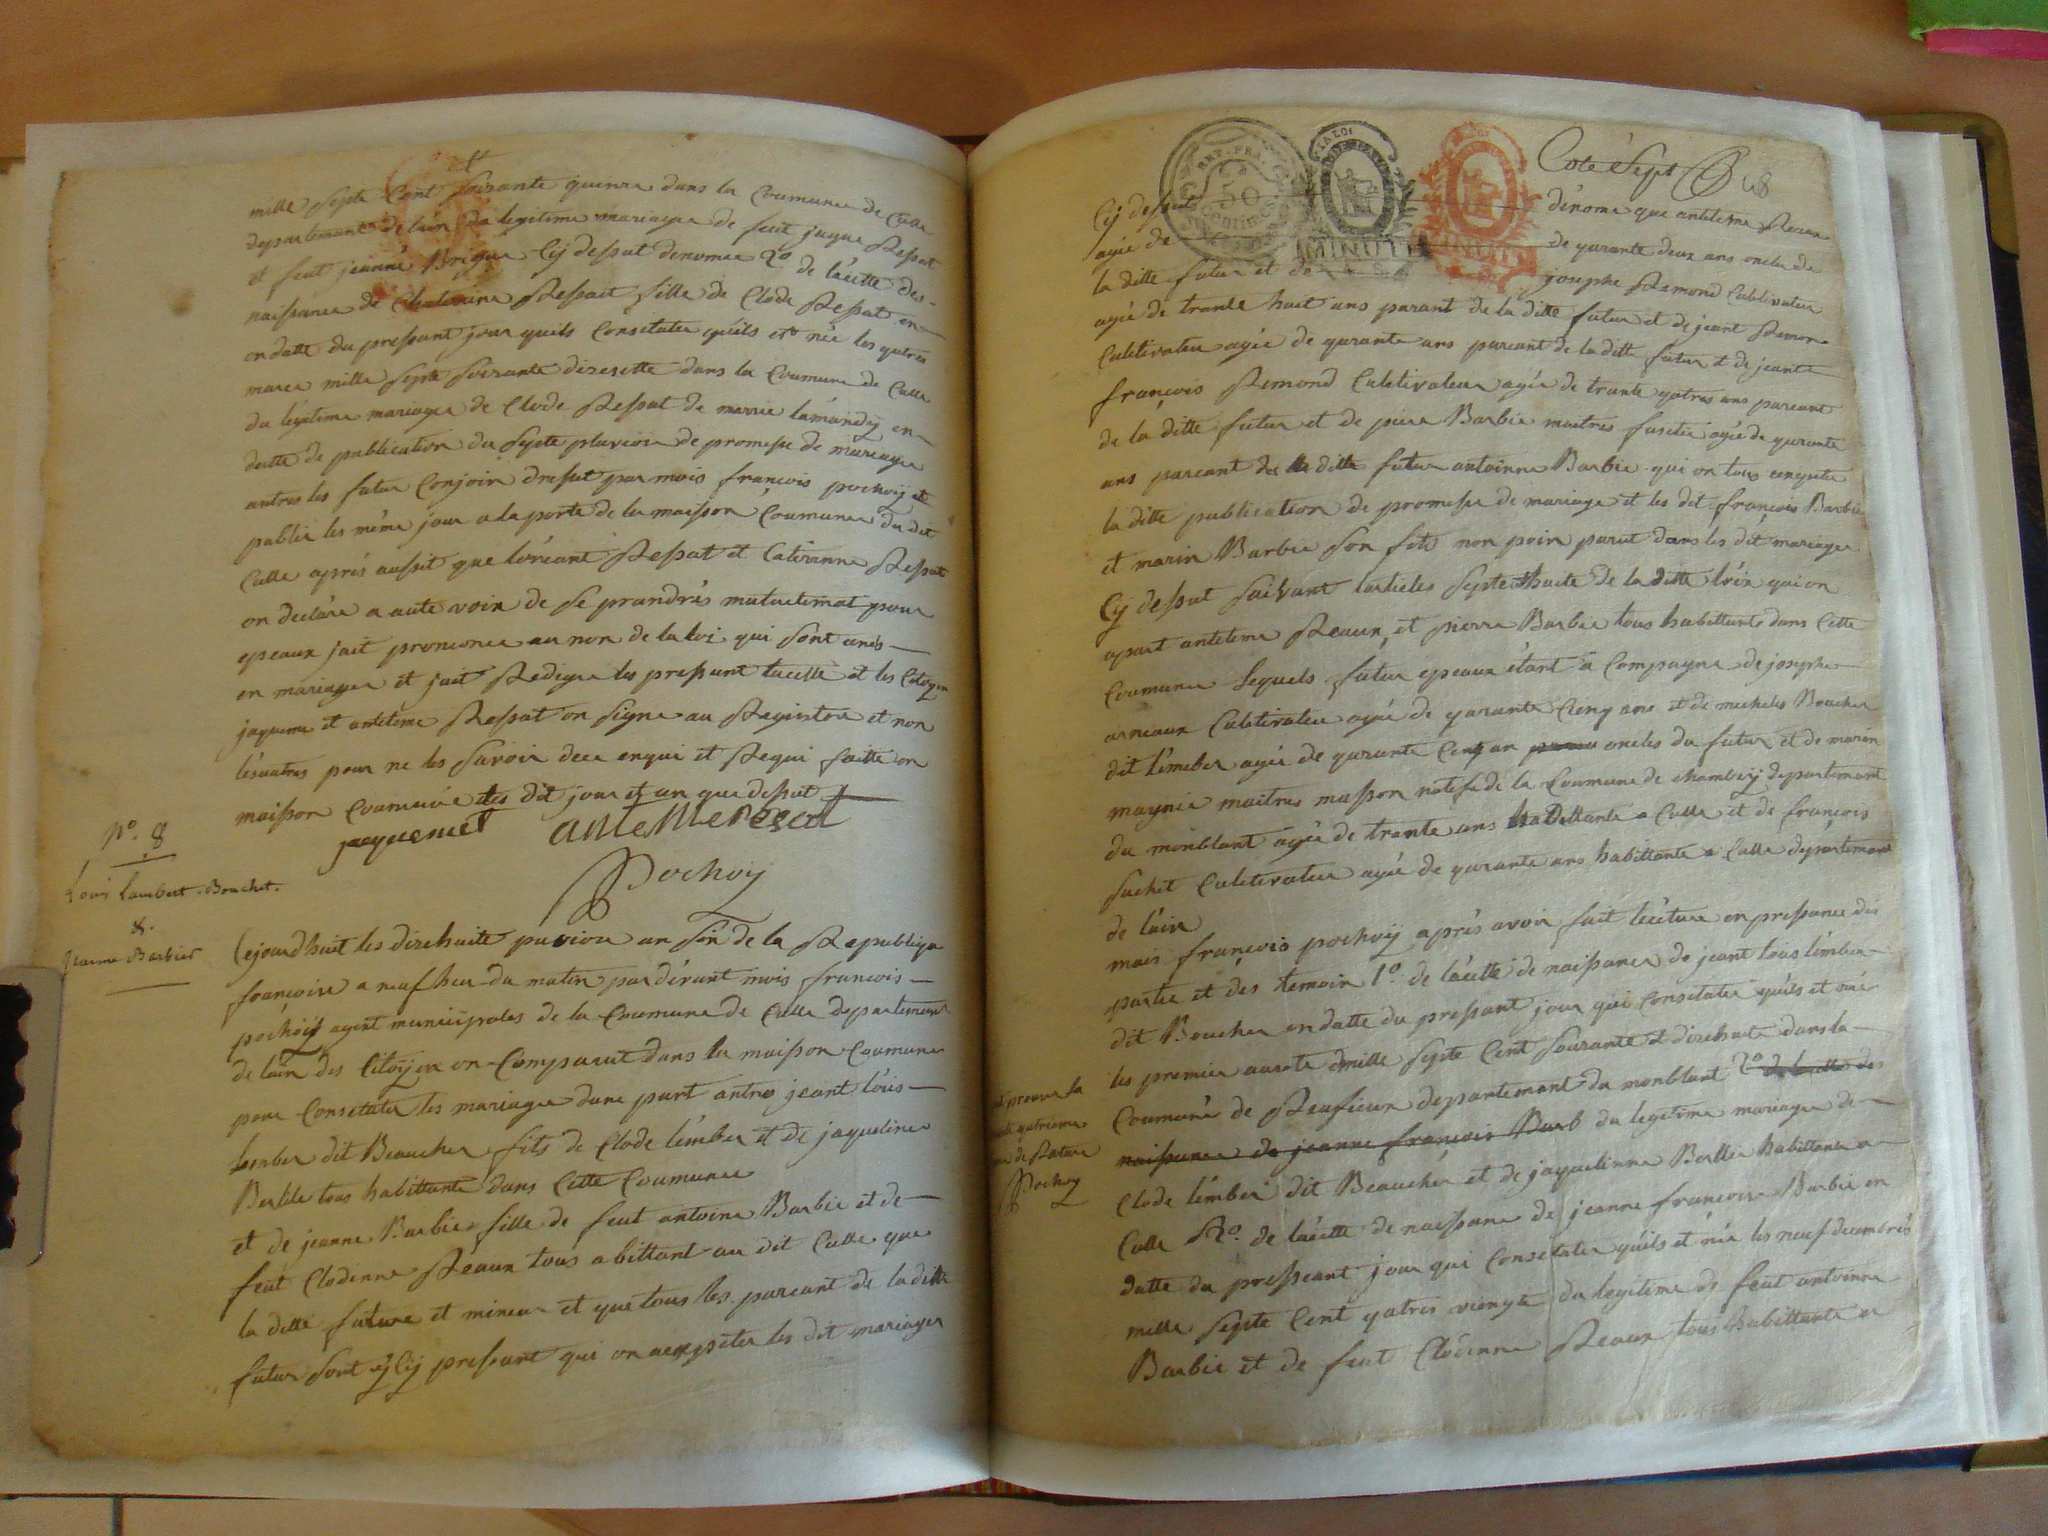 mille septe Cent soixante quinze dans la Coumune de Culle
departement de lain du legitime mariage de feut jaque Ressat
et feut jeanne Brigue Cij dessut denomee 2o de lacette des
naissance de Catarine Ressait fille de Clode Ressat en
en datte du pressant jour quils Consetater quils et née les quatres
marce mille septe soixante dixesette dans la Coumune de Culle
du légitime mariage de Clode Ressat de marrie en
datte de publication du septe pluviose de promesse de mariage
antres les futur Conjoin dresset par mois francois pochoij et
publier les même jour a la porte de la maisson Coumune du dit
Culle aprés aussit que loréant Ressat et Catérinne Ressat
on declàre a aute voix de se prandrés mutuelmat pour
epeaux jait prononcé au non de la loi qui sont unis
en mariage et jait Rediger les pressant lacette et les Citoyen
jaqueme et anteleme Ressat on signe au Registere et non
lésautres pour ne les savoir dece enqui et Requi faitte en
maisson Coumune les dit jour et an que dessut
jaquemet anteMe resat
Pochoij
No. 8
Louis Lambert-Bouchet.
&.
Jeanne Barbier
Cejourdhuit les dixehuite puviou an sin de la Republique
françoise a neuf heu du matin par dévant mois francois
pochoij agent municipales de la Coumune de Culle departement
de lain des Citoijen on Comparut dans la maisson Coumune
pour Consetater les mariage dune part antres jeant lóuis
lember dit Beaucher fits de Clode lémber et de jaqueline
Berlile tous habittante dans Cette Coumune
et de jeanne Barbie fille de feut antoine Barbie et de
feut Clodinne Reaux tous abittant au dit Culle que
la ditte future et mineur et que tous les pareant de la ditte
futur sont ij Cij pressant qui on acexpeter les dit mariage
LA LOI
REP. FRA.
50
centimes
MINUTE
MINUTE
Coté Sept 48
Cij dessut dénome que anteleme Reaux
agée de de qurante deux ans oncle de
la ditte futur et de josephe Remond Cultivateur
agée de trante huit ans parant de la ditte futur et de jeant Remon
Cultivateur agée de qurante ans pareant de la ditt futur et de jeant
françois Remond Cultivateur agée de trante qatres ans pareant
de la ditte futur et de piere Barbie maitres agée de qurante
ans pareant de la ditte futur antoinne Barbie qui on tous
la ditte publication de promesse de mariage et les dit françois Barbie
et marin Barbie son fits non poin parut dans les dit mariage
Cij dessut suivant lartieles septe huite de la ditte loix qui on
apart anteleme Reaux et pierre Barbie tous habittante dans Cette
Coumune Lequels futur epeaux étant a Compagne de josephe
arneaux Cultivateur agée de qurante Cenq ans et de micheles Boucher
dit lember agée de qurante Cenq an oncles du futur et de marin
maynier maitres masson natife de la Coumune de chambery departement
du monblant agée de trante ans habittante a Culle et de françois
suchet Cultivateur agée de qurante ans habittante a Culle departement
de lain
mois françois pochoij aprés avoir fait lecture en pressance des
partie et des temoin 1o. de lacette de naissance de jeant louis lémber
dit Boucher en datte du pressant jour qui Consetater quils et née
les premier mille septe Cent soixante et dixehuite dans la
Coumune de departemant du monblant 2o de lacette des
naissance de jeanne françois Barb du legetime mariage de
Clode lémber dit Beaucher et de jaquelinne Berllie habittante a
Culle 2o. de lacette de naissane de jeanne francoise Barbie en
datte du presseant jour qui Consetater quils et née les neuf decembres
mille septe Cent qatres viengte du legetime de feut antoinne
Barbie et de feut Clodinne Reaux tous habittante a
la
quatrieme
de Rature
Pochoy